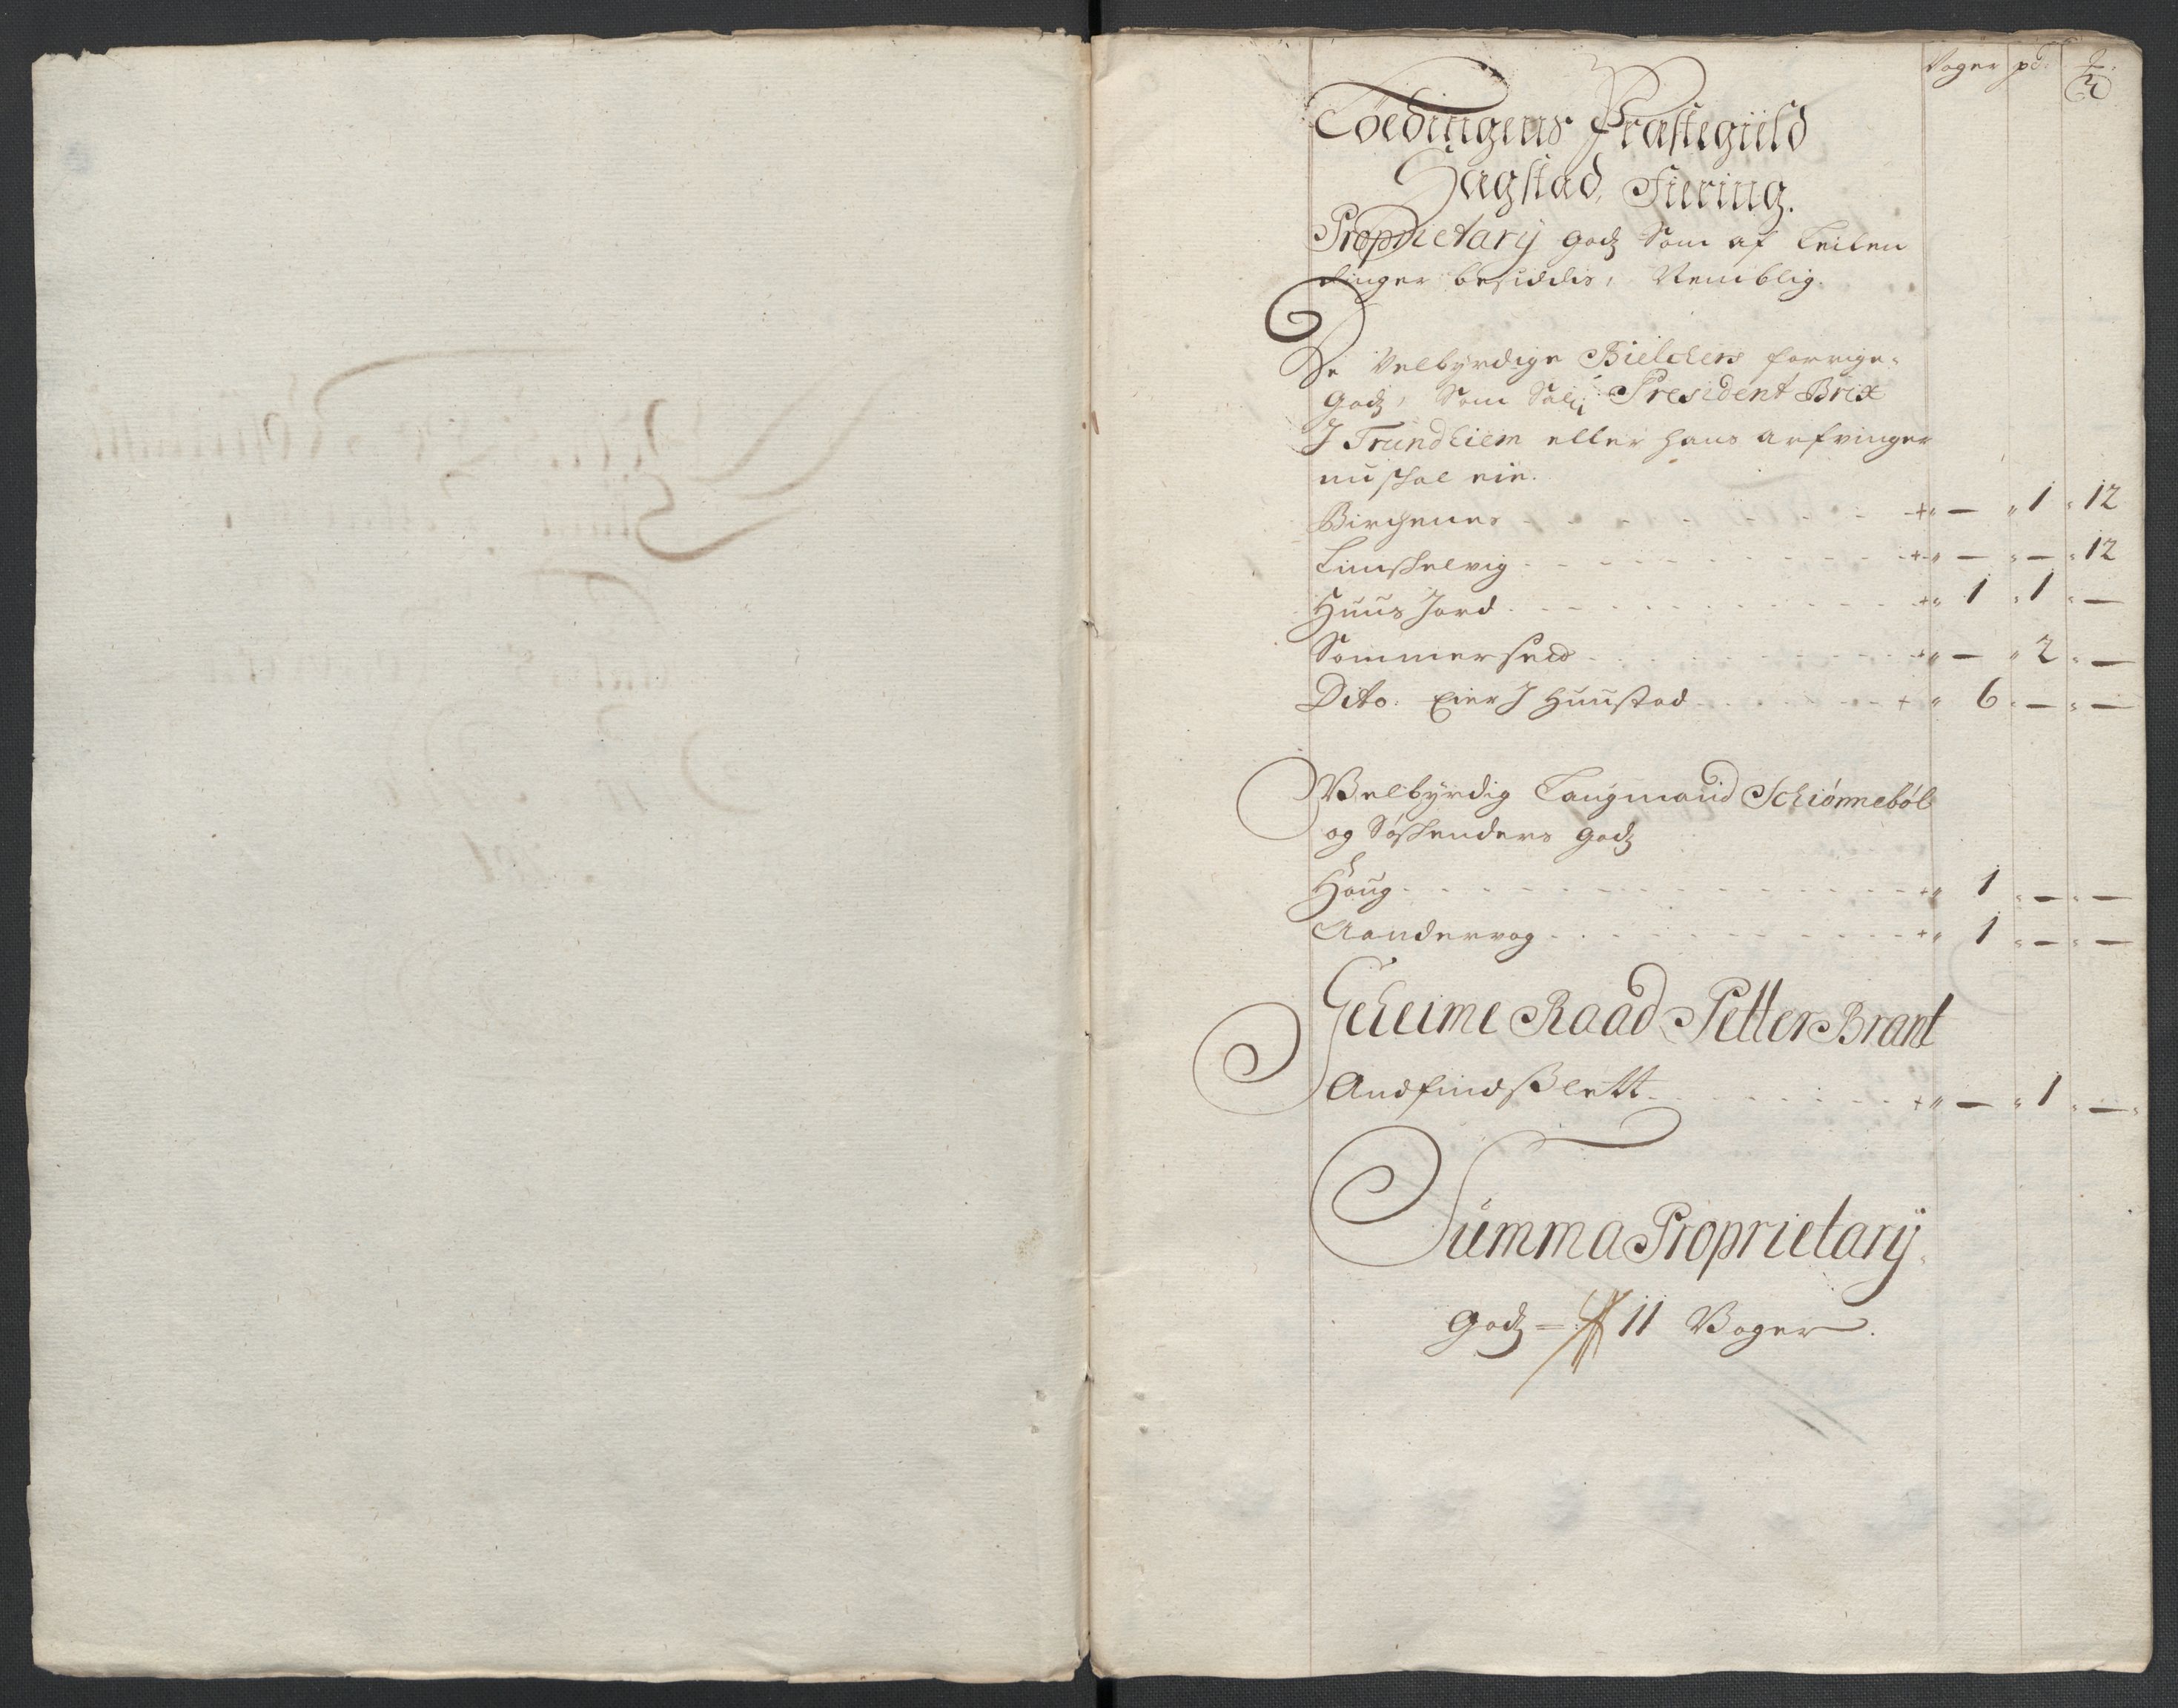 Voger pd: ℔
Loedingens Præstegiild
Hagstad Fiering.
Proprietarÿ godz Som af Leilen
dinger besiddis, Nemblig.
De Velbyrdige Bielchers forrige
godz, Som Salig President Brix
I Trundhiem eller hans arfvinger
nu skal eie.
Birchenes - - - + „ — „ 1 „ 12
Limskelvig - - - + „ — „ — „ 12
Huus Jord - - - + „ 1 „ 1 „ —
Sommerseed - - - + „ — „ 2 „ —
Dito. Eier I Huustad - - - + „ 6 „ — „ —
Velbyrdig Laugmand Schiønnebøl
og Søskenders godz
Houg - - - + „ 1 „ — „ —
Aandervog - - - + „ 1 „ — „ —
Geheime Raad Petter Brant
Andfindsslett - - - + „ — „ 1 „ —
Summa Proprietarÿ
godz = 11 Voger.